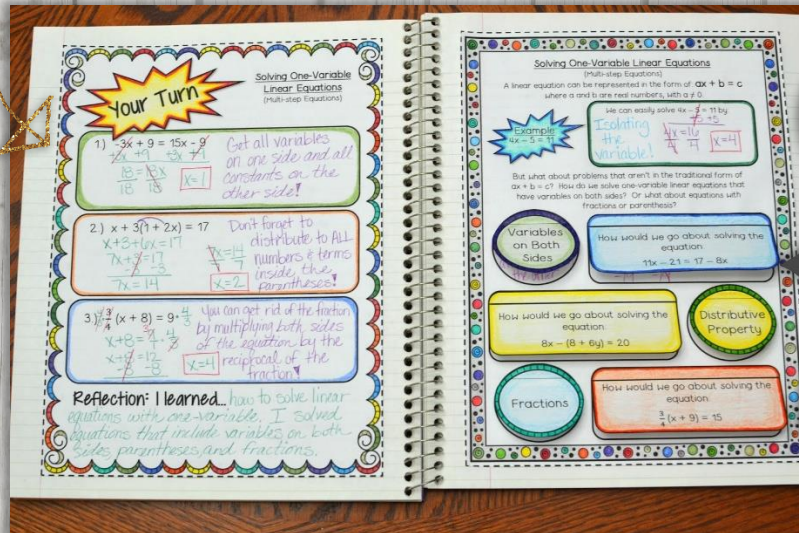 Your Turn
Solving One-Variable
Linear Equations
(Multi-step Equations)
1) -3x + 9 = 15x - 9
+3x +9 +3x +9
18 = 18x
18 18
x=1
Get all variables
on one side and all
constants on the
other side!
2.) x + 3(1 + 2x) = 17
x+3+6x=17
7x+3=17
-3 -3
7x=14
7x=14
7 7
x=2
Don't forget to
distribute to ALL
numbers & terms
inside the
parentheses!
3.) 4/3 · 3/4 (x + 8) = 9 · 4/3
x+8= · 4/3
x+8=12
-8 -8
x=4
You can get rid of the fraction
by multiplying both sides
of the equation by the
reciprocal of the
fraction!
Reflection: I learned... how to solve linear
equations with one-variable. I solved
equations that include variables on both
sides, parentheses, and fractions.
Solving One-Variable Linear Equations
(Multi-step Equations)
A linear equation can be represented in the form of ax + b = c
where a and b are real numbers, with a ≠ 0.
Example:
4x - 5 = 11
We can easily solve 4x - 5 = 11 by
+5 +5
Isolating
the
variable!
4x=16
4 4
x=4
But what about problems that aren't in the traditional form of
ax + b = c? How do we solve one-variable linear equations that
have variables on both sides? Or what about equations with
fractions or parenthesis?
Variables
on Both
Sides
How would we go about solving the
equation
11x - 21 = 17 - 8x
How would we go about solving the
equation
8x - (8 + 6y) = 20
Distributive
Property
Fractions
How would we go about solving the
equation
3/4 (x + 9) = 15